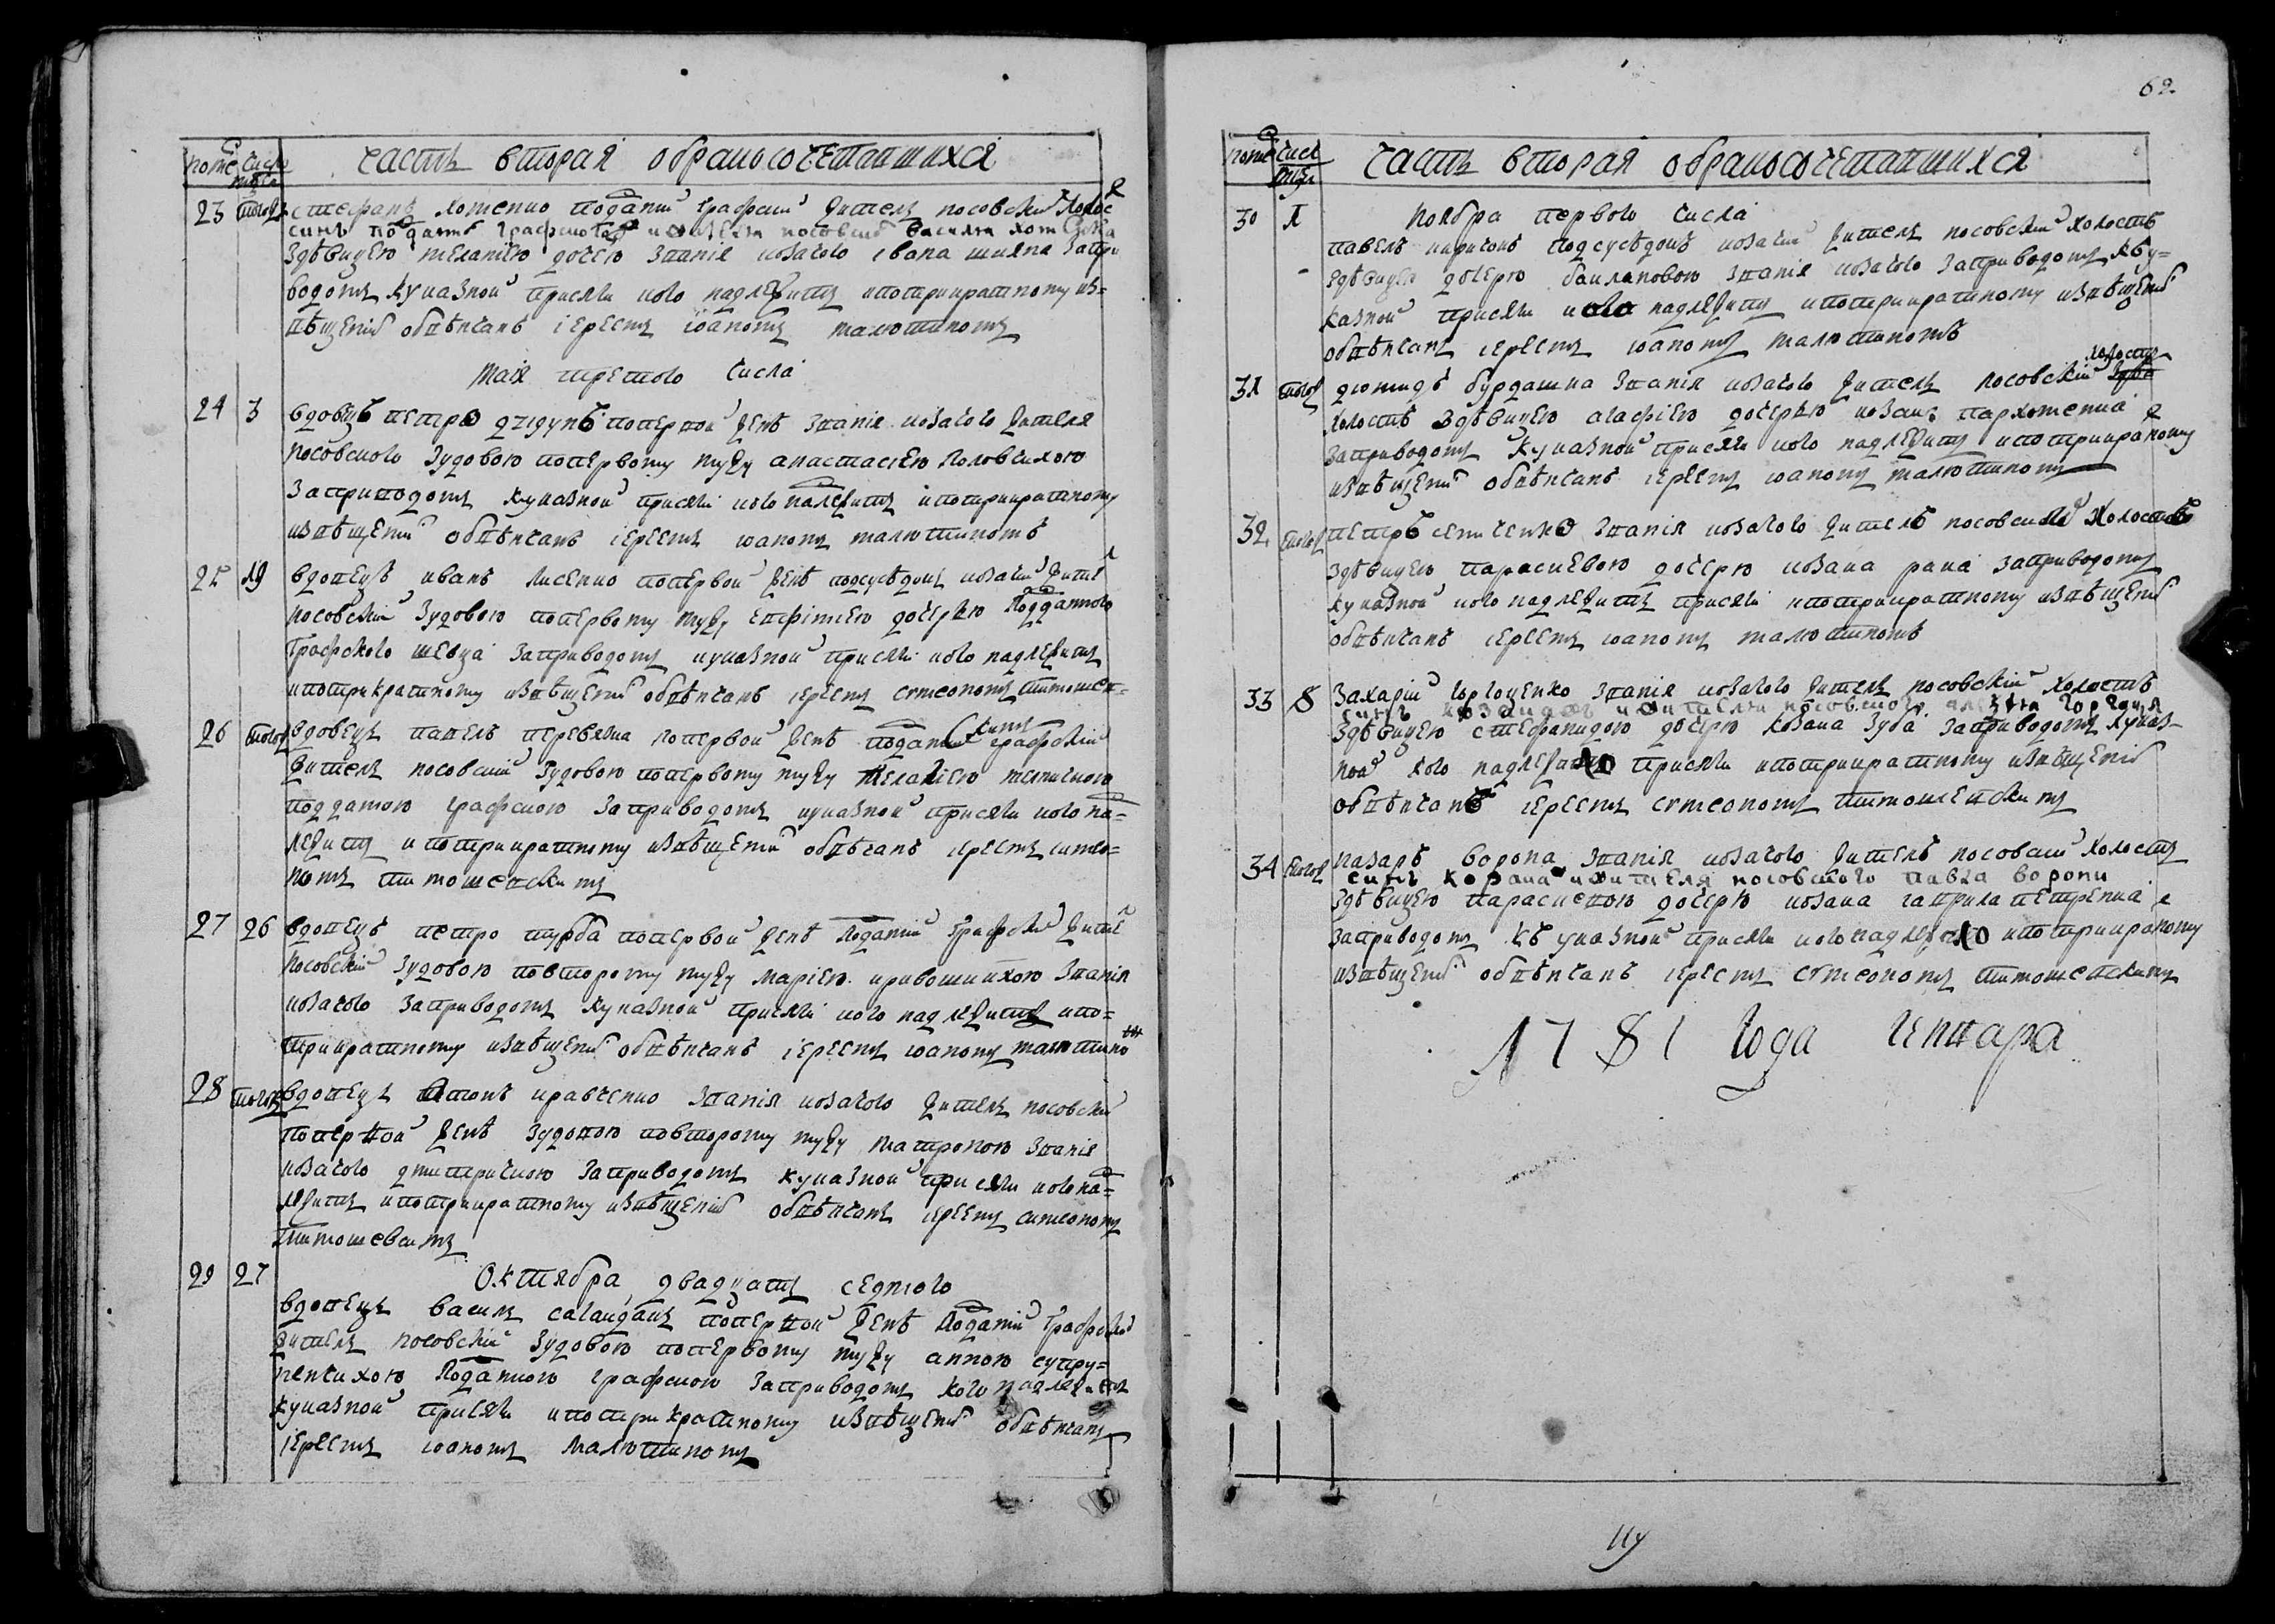 часть вторая о бракосочетавшихся
23 того стефанъ хоменко поданій графскій житель носовскій холос
синъ поданого графского и жителя носовскаго василия хоменка
здѣвицею меланіею дочерю званія козачого івана шияна запри
водомъ куказной присяги кого надлежитъ ипотрикратному из=
вѣщеніи обвѣнчанъ іереемъ іоаномъ малютиномъ
маія третого числа
24 3 вдовецъ петро попервой женѣ званія козачого жителя
носовского зудовою попервому мужу анастасіею половчихою
заприводомъ куказной присяги кого надлежитъ іпотрикратному
извѣщеніи обвѣнчанъ іереемъ іоаномъ малютиномъ
25 19 вдовецъ иванъ лисенко попервой женѣ подсусѣдокъ козачій жител
носовскій зудовою попервому мужу евфіміею дочерью подданного
графского шевца заприводомъ куказной присяги кого надлежитъ
ипотрикратному извѣщеніи обвѣнчанъ іереемъ симеономъ тимошев=
скимъ
26 того вдовецъ павелъ перевязка попервой женѣ поданій графскій
житель носовскій зудовою попервому мужу меланіею
подданою графскою заприводомъ куказной присяги кого на=
лежитъ ипотрикратному извѣщеніи обвѣчанъ іереемъ симео=
номъ тимошевскимъ
27 26 вдовецъ петро щерба попервой женѣ поданій графскій жител
носовскій зудовою повторому мужу маріею кривошиихою званія
козачого заприводомъ куказной присяги кого надлежитъ ипо=
трикратному извѣщеніи обвѣнчанъ іереемъ іоаномъ малютино
28 того вдовецъ антонъ кравченко званія козачого житель носовскій
попервой женѣ зудовою повторому мужу матроною званія
козачого дмитричкою заприводомъ куказной присяги кого на=
лежитъ ипотрикратному извѣщеніи обвѣнчанъ іереемъ симеономъ
тимошевскимъ
Октября двадцать седмого
29 27 вдовецъ василь салайдакъ попервой женѣ поданій графской
житель носовскій зудовою попервому мужу анною супру=
ненчихою поданною графскою заприводомъ кого надлежитъ
куказной присяги ипотрикратному извѣщеніи обвѣнчанъ
іереемъ іоаномъ малютиномъ
62
часть вторая о бракосочетавшихся
30 1 ноября первого числа
павелъ киричокъ подсусѣдокъ козачій житель носовскій холостъ
здѣвицею дочерю баклановою званія козачого заприводомъ къ у=
казной присяги кого надлежитъ ипотрикратному извѣщеніи
обвѣнчанъ іереемъ іоаномъ малютиномъ
31 того диомидъ бурдашка званія козачого житель носовскій холостъ
холостъ здѣвицею агафіею дочерью козака пархоменка
заприводомъ куказной присяги кого надлежитъ ипотрикраному
извѣщеніи обвѣнчанъ іереемъ іоаномъ малютиномъ
32 того петръ семченко званія козачого житель носовский холостъ
здѣвицею параскевою дочерю козака рака заприводомъ
куказной кого надлежитъ присяги ипотрикратному извѣщеніи
обвѣнчанъ іереемъ іоаномъ малютиномъ
33 8 Захарій горгоценко званія козачого житель носовскій холостъ
синъ козацкаго жителя носовского
здѣвицею стефанидою дочерю козака зуба заприводомъ куказ=
ной кого надлежало присяги ипотрикратному извѣщеніи
обвѣнчанъ іереемъ симеономъ тимошевскимъ
34 того назаръ ворона званія козачого житель носовскій холостъ
синъ козака и жителя носовского павла ворони
здѣвицею параскевою дочерю козака гаврила петренка
заприводомъ къ указной присяги кого надлежало ипотрикраному
извѣщеніи обвѣнчанъ іереемъ симеономъ тимошевскимъ
1781 года генвара